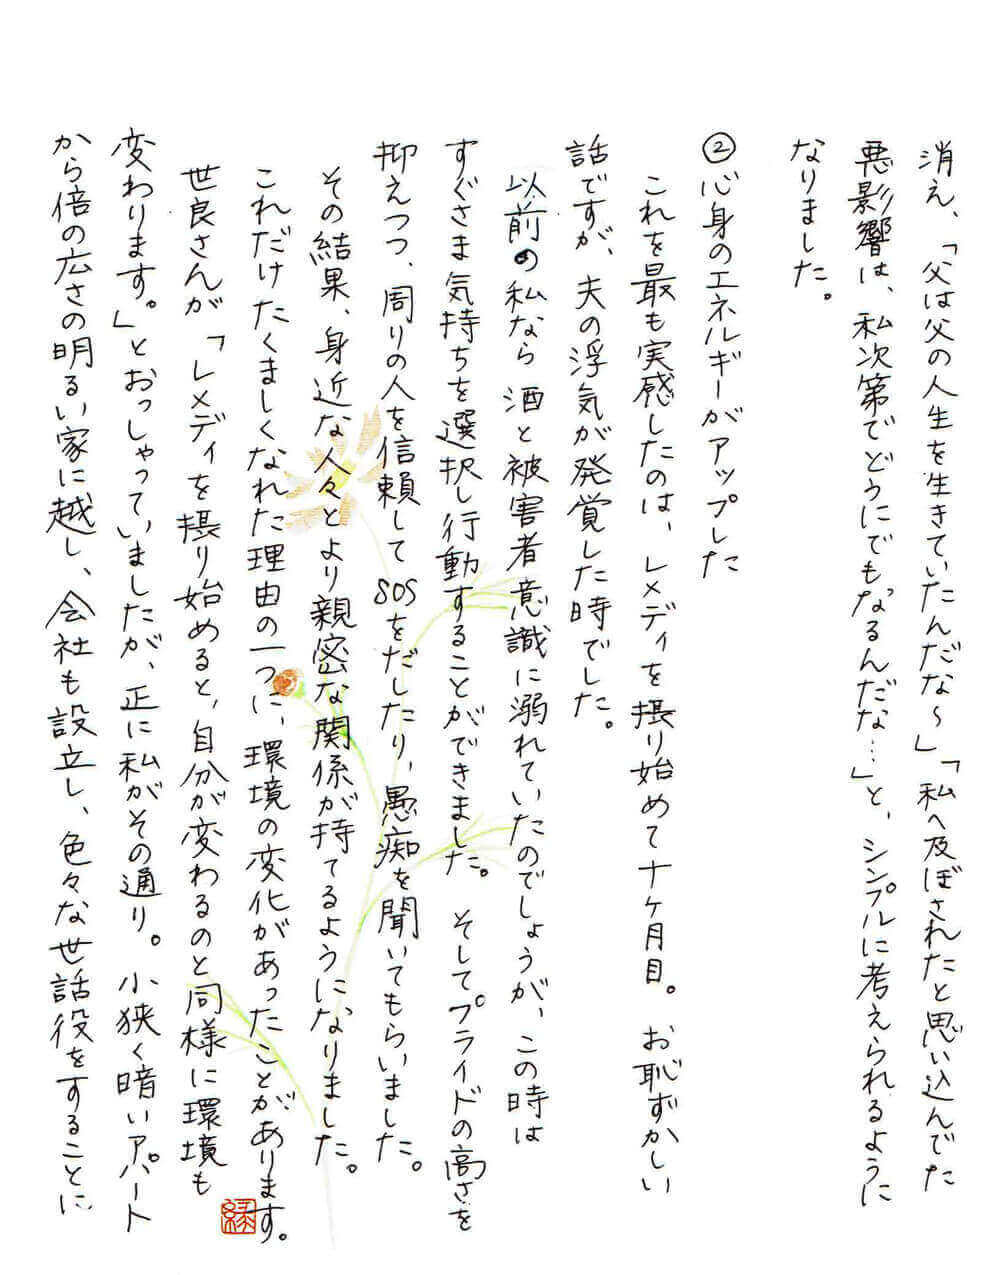 消え、「父は父の人生を生きていたんだな～」「私へ及ぼされたと思い込んでた
悪影響は、私次第でどうにでもなるんだな…」と、シンプルに考えられるように
なりました。
②心身のエネルギーがアップした
これを最も実感したのは、レメディを摂り始めて十ヶ月目。お恥ずかしい
話ですが、夫の浮気が発覚した時でした。
以前の私なら酒と被害者意識に溺れていたのでしょうが、この時は
すぐさま気持ちを選択し行動することができました。そしてプライドの高さを
抑えつつ、周りの人を信頼してSOSをだしたり、愚痴を聞いてもらいました。
その結果、身近な人々とより親密な関係が持てるようになりました。
これだけたくましくなれた理由の一つに、環境の変化があったことがあります。
世良さんが「レメディを摂り始めると、自分が変わるのと同様に環境も
変わります。」とおっしゃっていましたが、正に私がその通り。小狭く暗いアパート
から倍の広さの明るい家に越し、会社も設立し、色々な世話役をすることに
縁